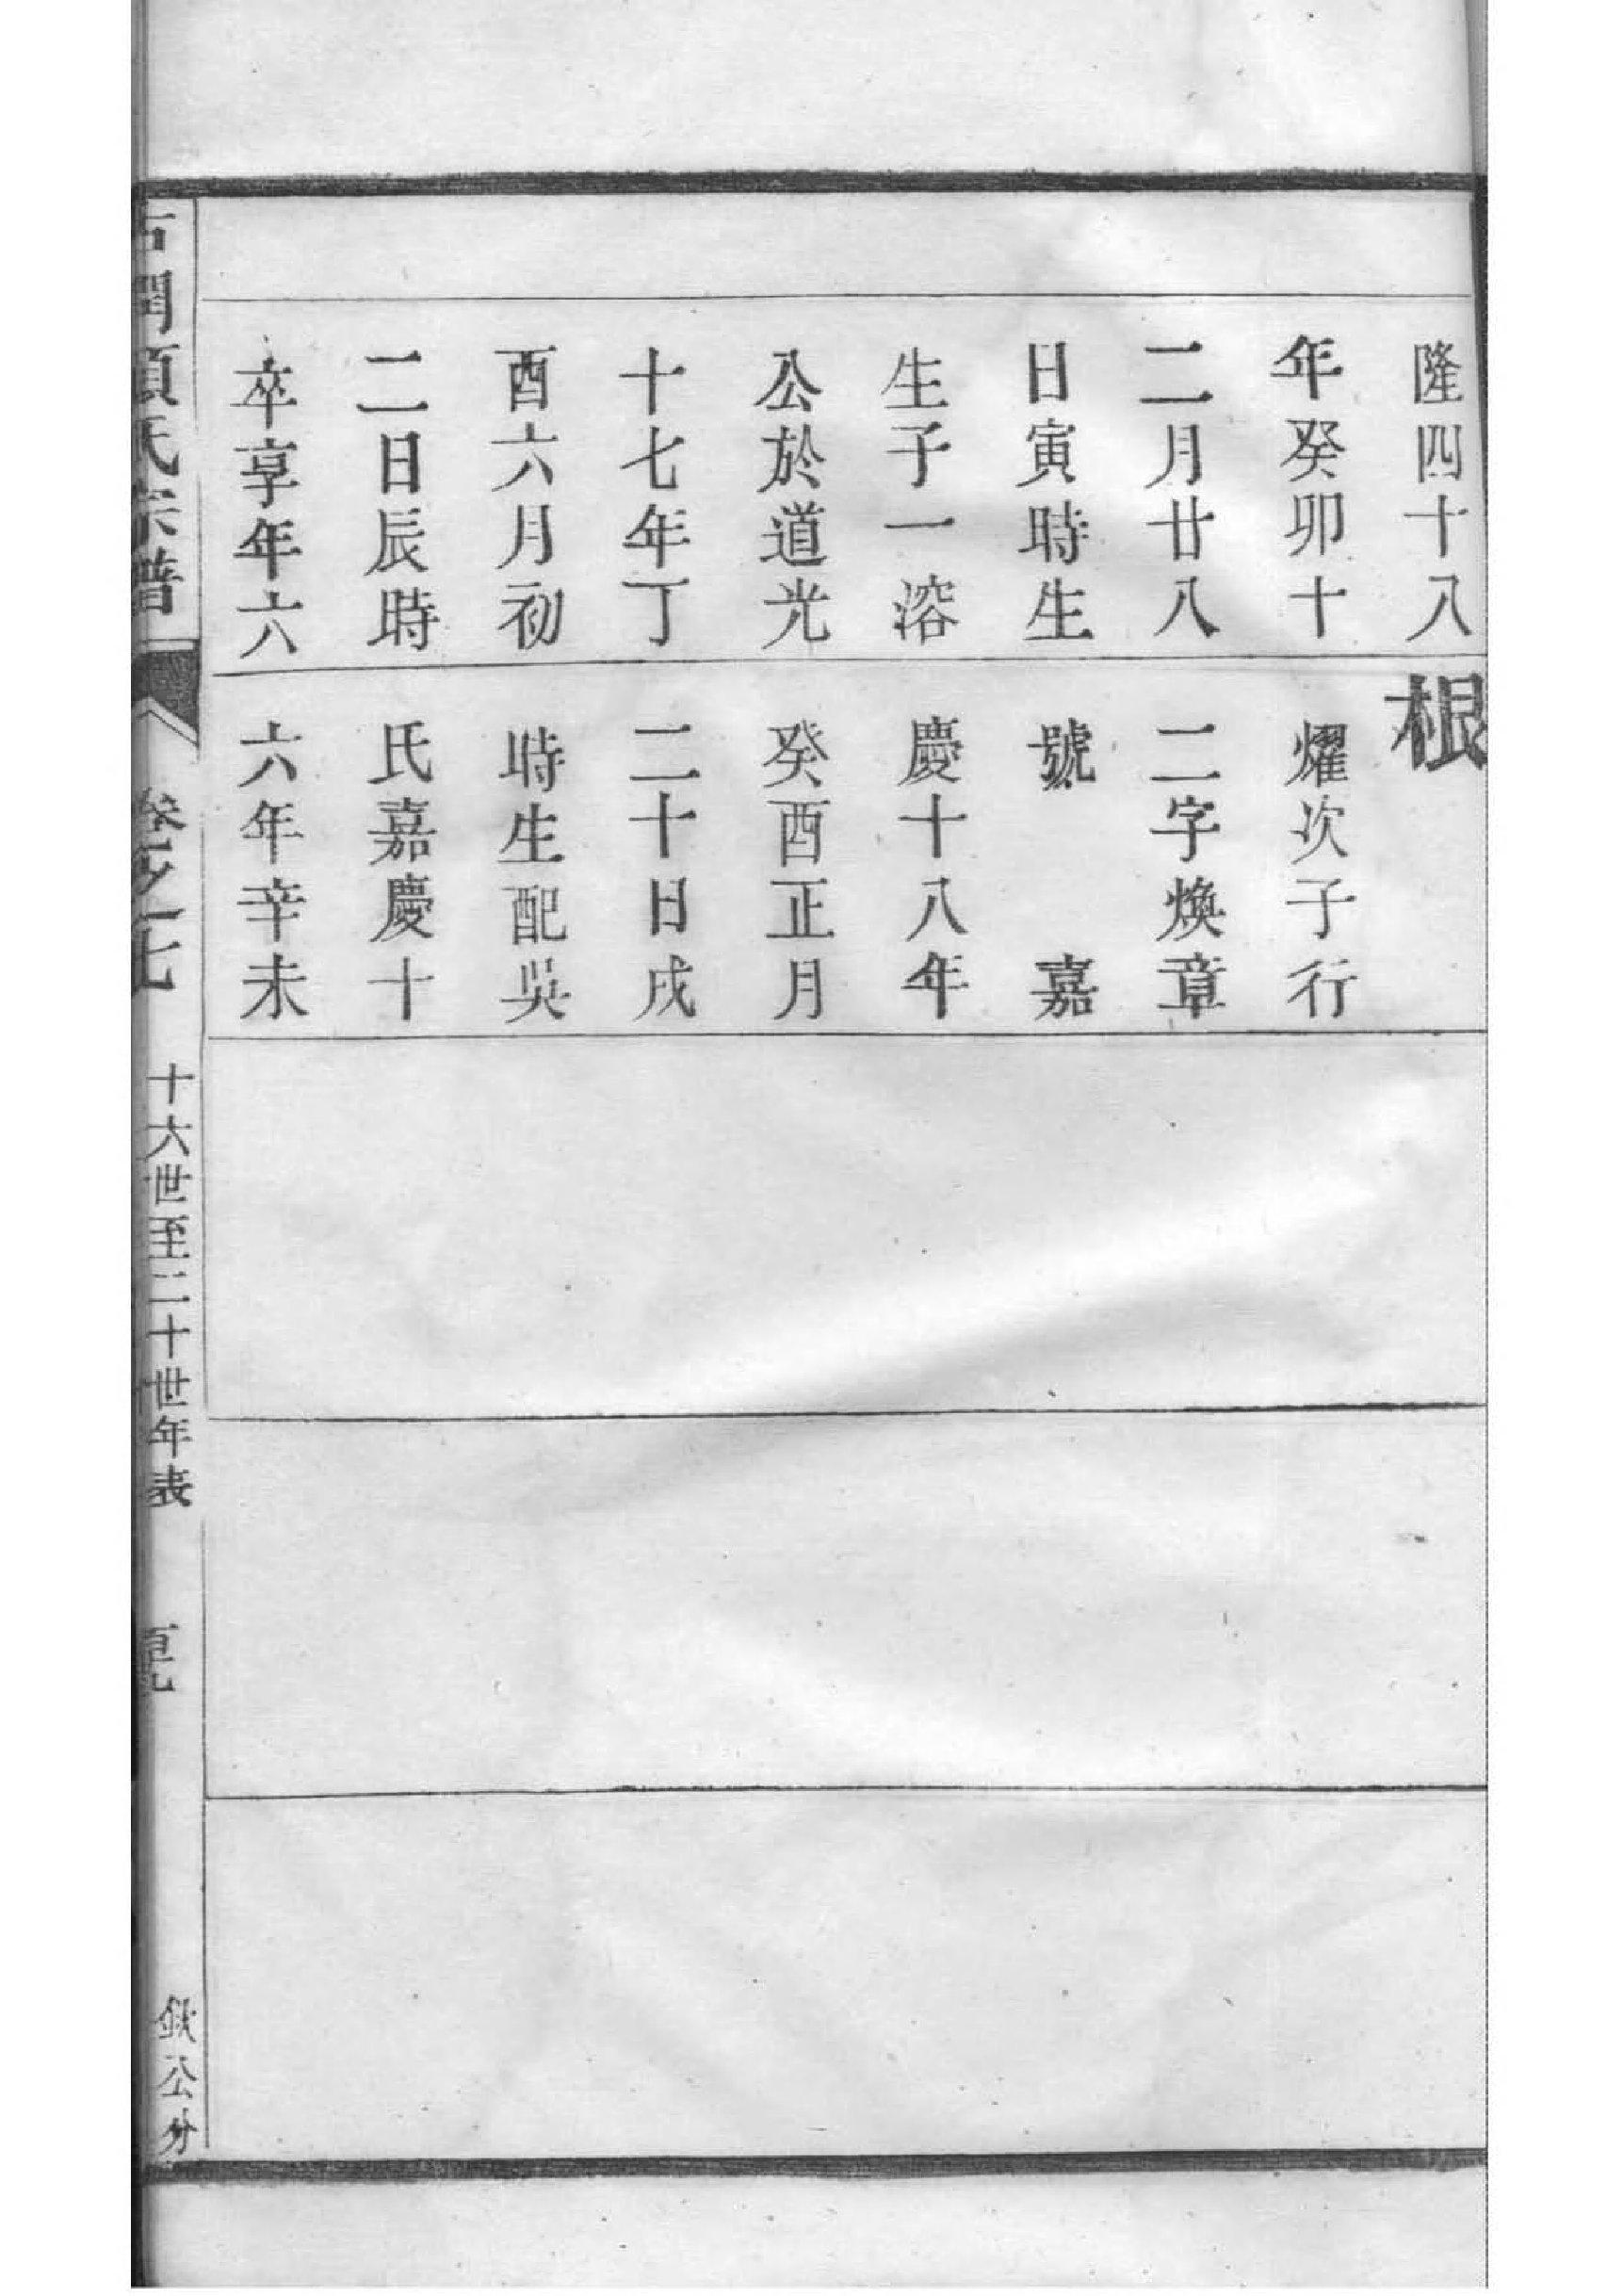 隆四十八
年癸卯十
二月廿八
日寅時生
生子一溶
公於道光
十七年丁
酉六月初
二日辰時
卒享年六
根
耀次子行
二字煥章
號 嘉
慶十八年
癸酉正月
二十日戌
時生配吳
氏嘉慶十
六年辛未
氏宗譜
卷之七
十六世至二十世年表
欽公分